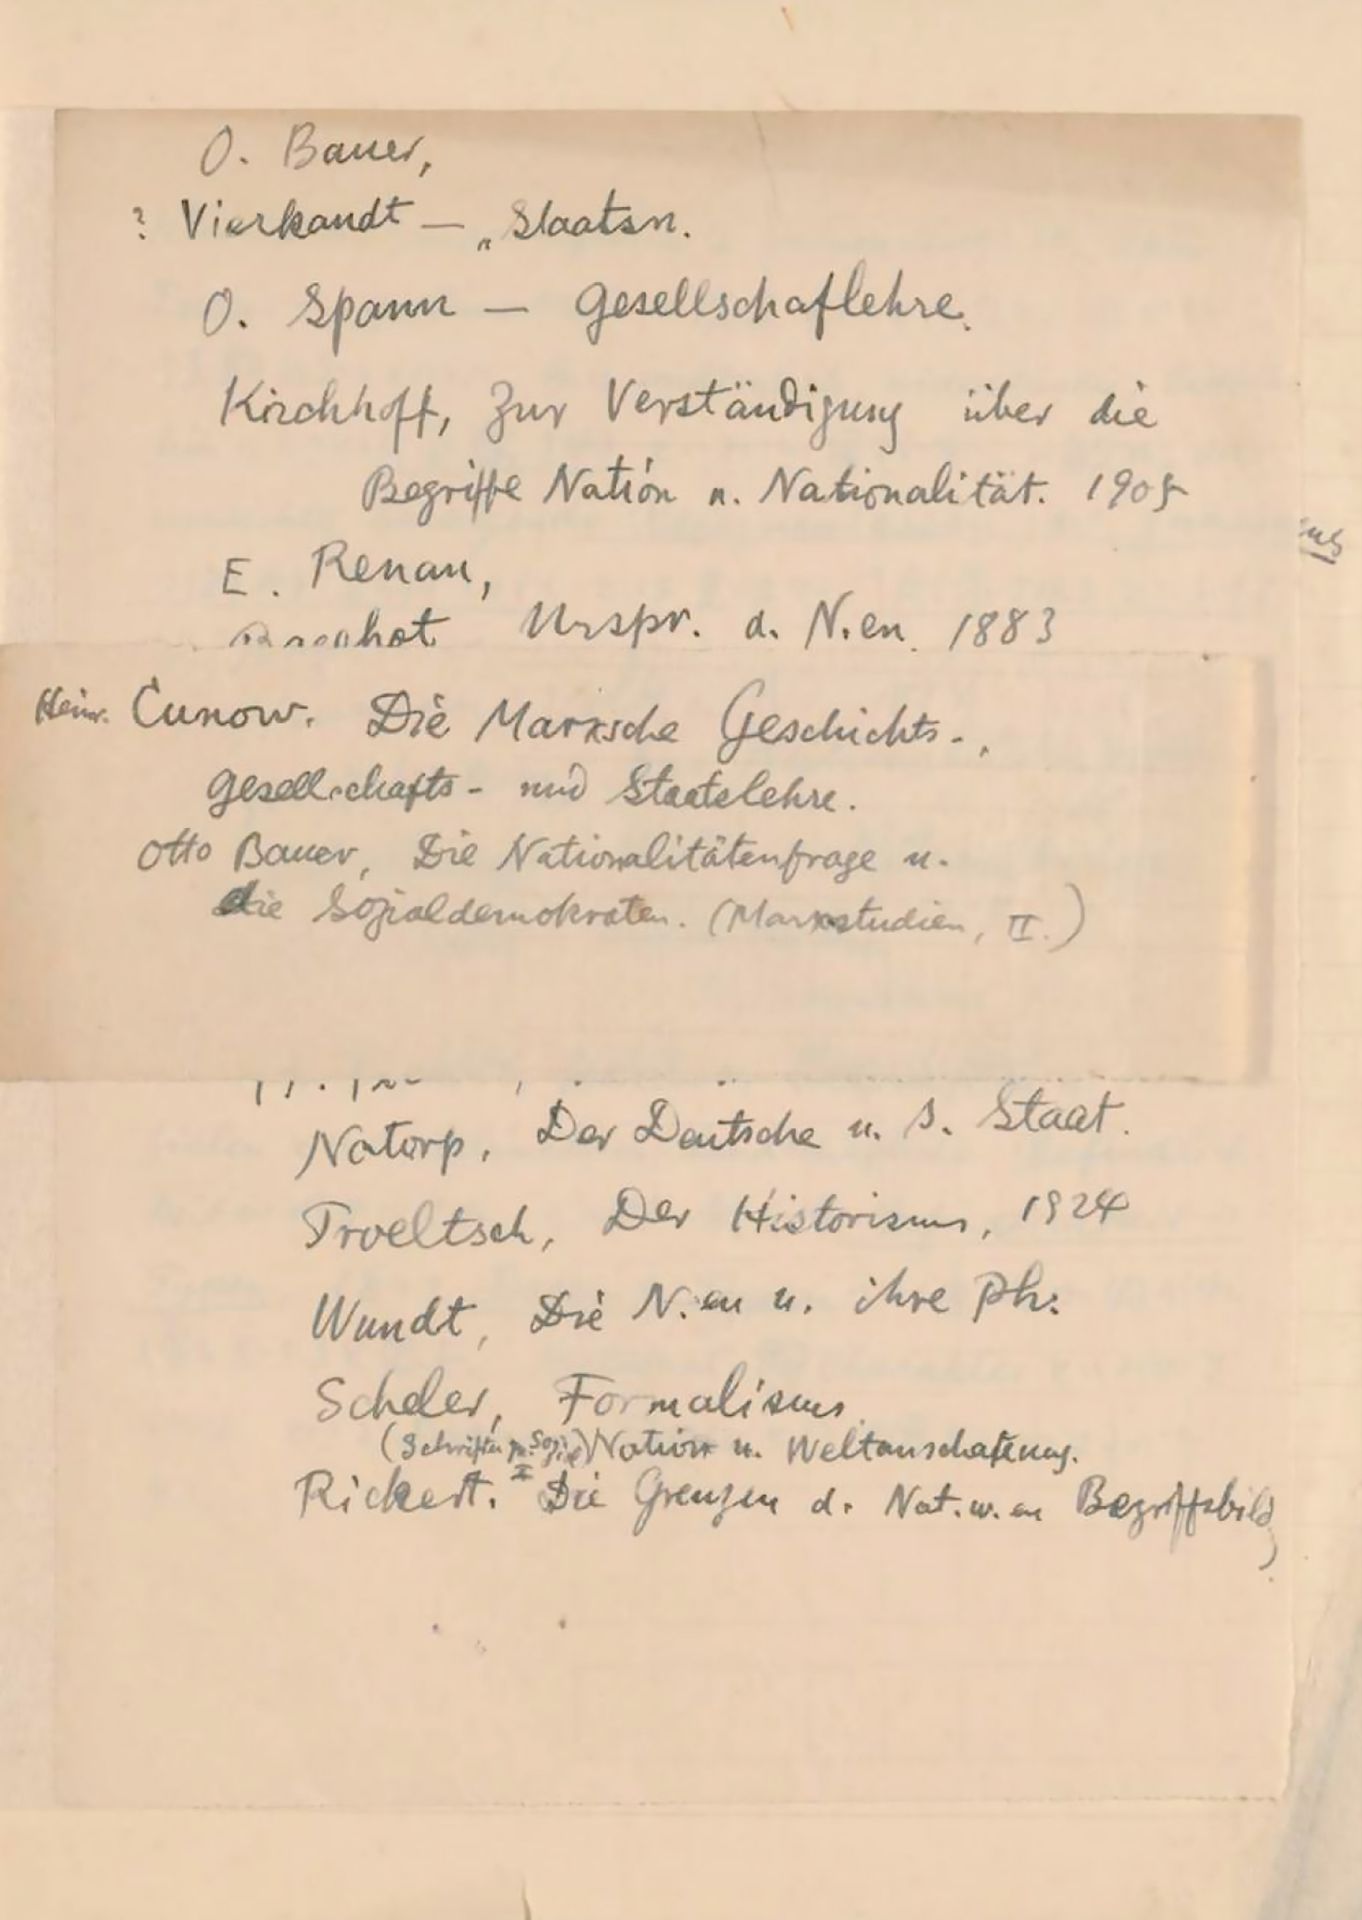 O. Bauer,
? Vierkandt — „Staatsn.
O. Spann — Gesellschaflehre.
Kirchhoff, Zur Verständigung über die
Begriffe Nation u. Nationalität. 1905
E. Renan,
Urspr. d. N.en. 1883
Heinr. Cunow. Die Marxsche Geschichts-,
Gesellschafts- und Staatslehre.
Otto Bauer, Die Nationalitätenfrage u.
die Sozialdemokraten. (Marxstudien, II.)
Natorp, Der Deutsche u. s. Staat.
Troeltsch, Der Historismus, 1924
Wundt, Die N.en u. ihre Ph.
Scheler, Formalismus
(Schriften z. Soz. ) Nation u. Weltanschauung.
II
Rickert. Die Grenzen d. Nat.w.en Begriffsbild